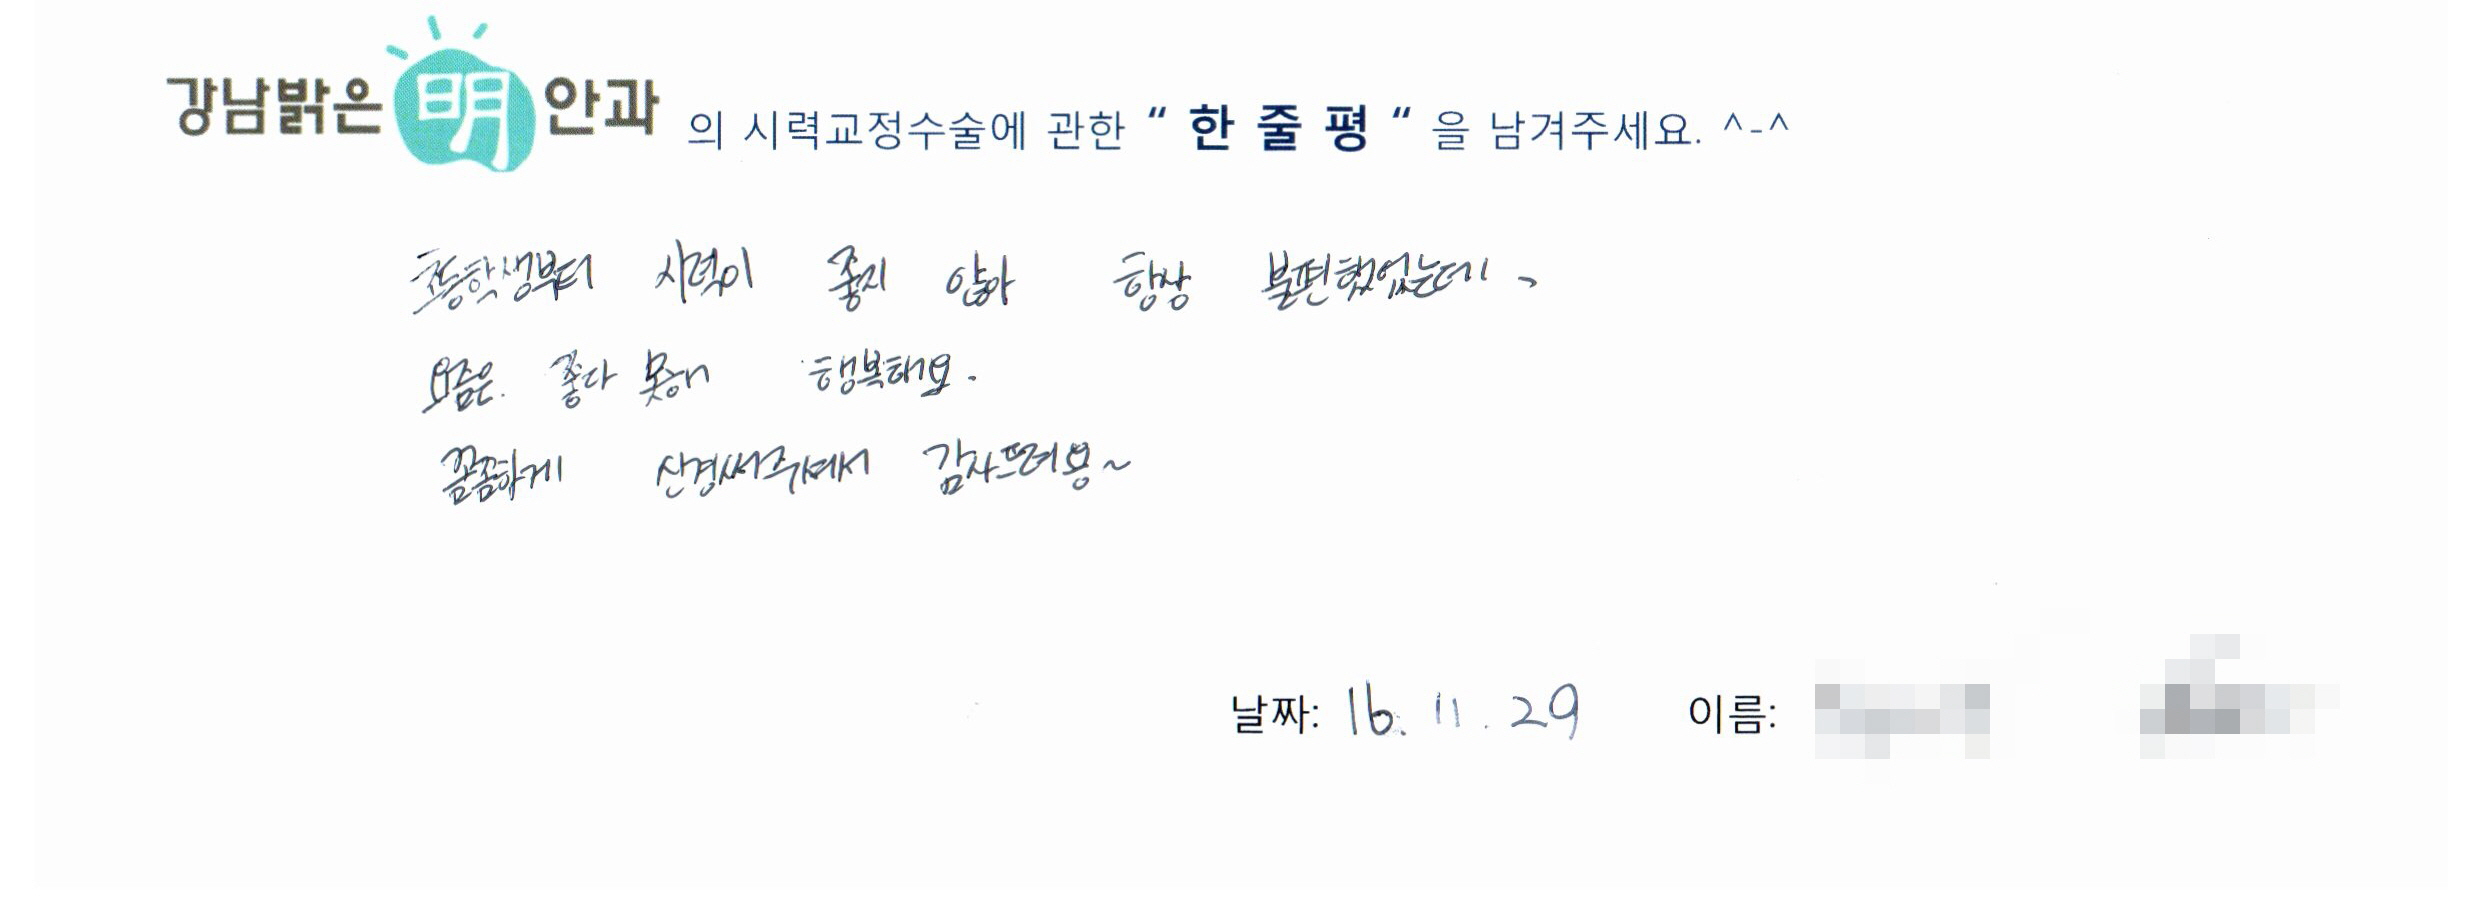 강남밝은明안과 의 시력교정수술에 관한 “ 한 줄 평 “ 을 남겨주세요. ^-^
초등학생부터 시력이 좋지 않아 항상 불편했었는데、
요즘은. 좋다 못해 행복해요.
꼼꼼하게 신경써주셔서 감사드려용~
날짜: 16. 11. 29 이름: